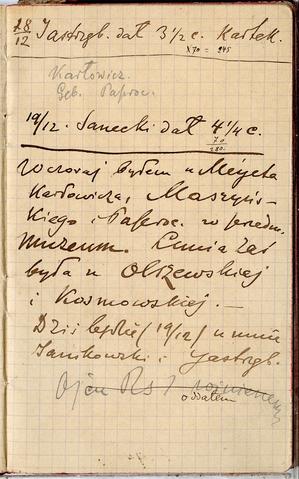 18/12 Jastrzęb. dał 3 1/2 c. Kartek.
x70 = 245
Karłowicz.
Geb. Paproc.
19/12. Sanecki dał 4 1/4 c.
70
280
Wczoraj byłem u Meyeta
Karłowicza, Maszyńs-
kiego i Paproc. w przedm.
muzeum. Ciunia zaś
była u Olszewskiej
i Kosmowskiej. —
Dziś będzie (19/12) u mnie
Janikowski i Jastrzęb.
Ojcu Rs 1
oddałem